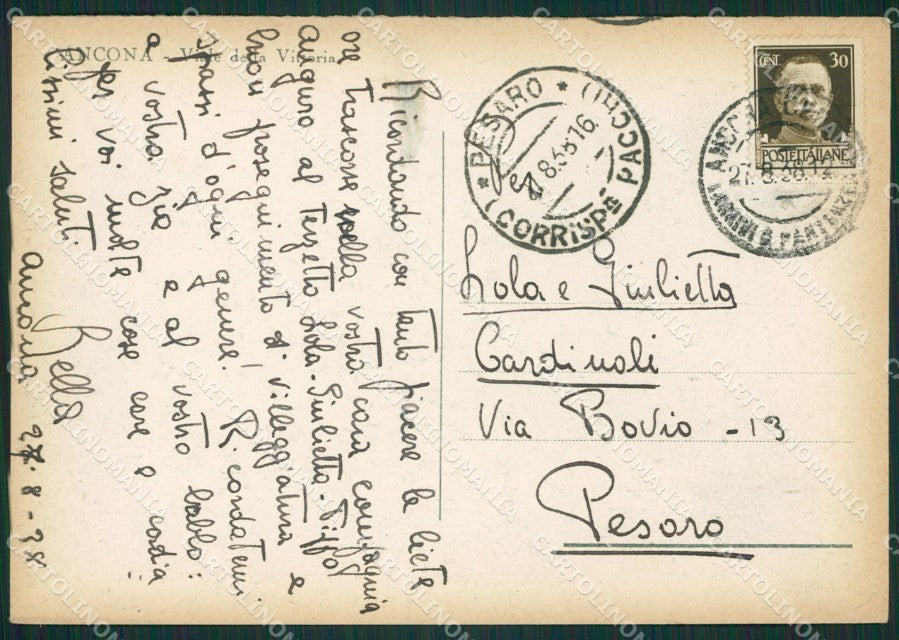 ANCONA - Viale della Vittoria
Ricordando con tanto piacere le liete
ore trascorse nella vostra cara compagnia
auguro al terzetto Lola - Giulietta - Pippo
buon proseguimento di villeggiatura e
spassi d'ogni genere! Ricordatemi
a vostra zia e al vostro babbo:
per voi molte cose care e cordia
lissimi saluti.
Ancona 27-8-38
CENT. 30
POSTE ITALIANE
PESARO
CORRISP. E PACCHI
27.8.38 16
ANCONA
27.8.38
ARRIVI E PARTENZE
Lola e Giulietta
Cardinali
Via Bovio - 13
Pesaro
CARTOLINOMANIA